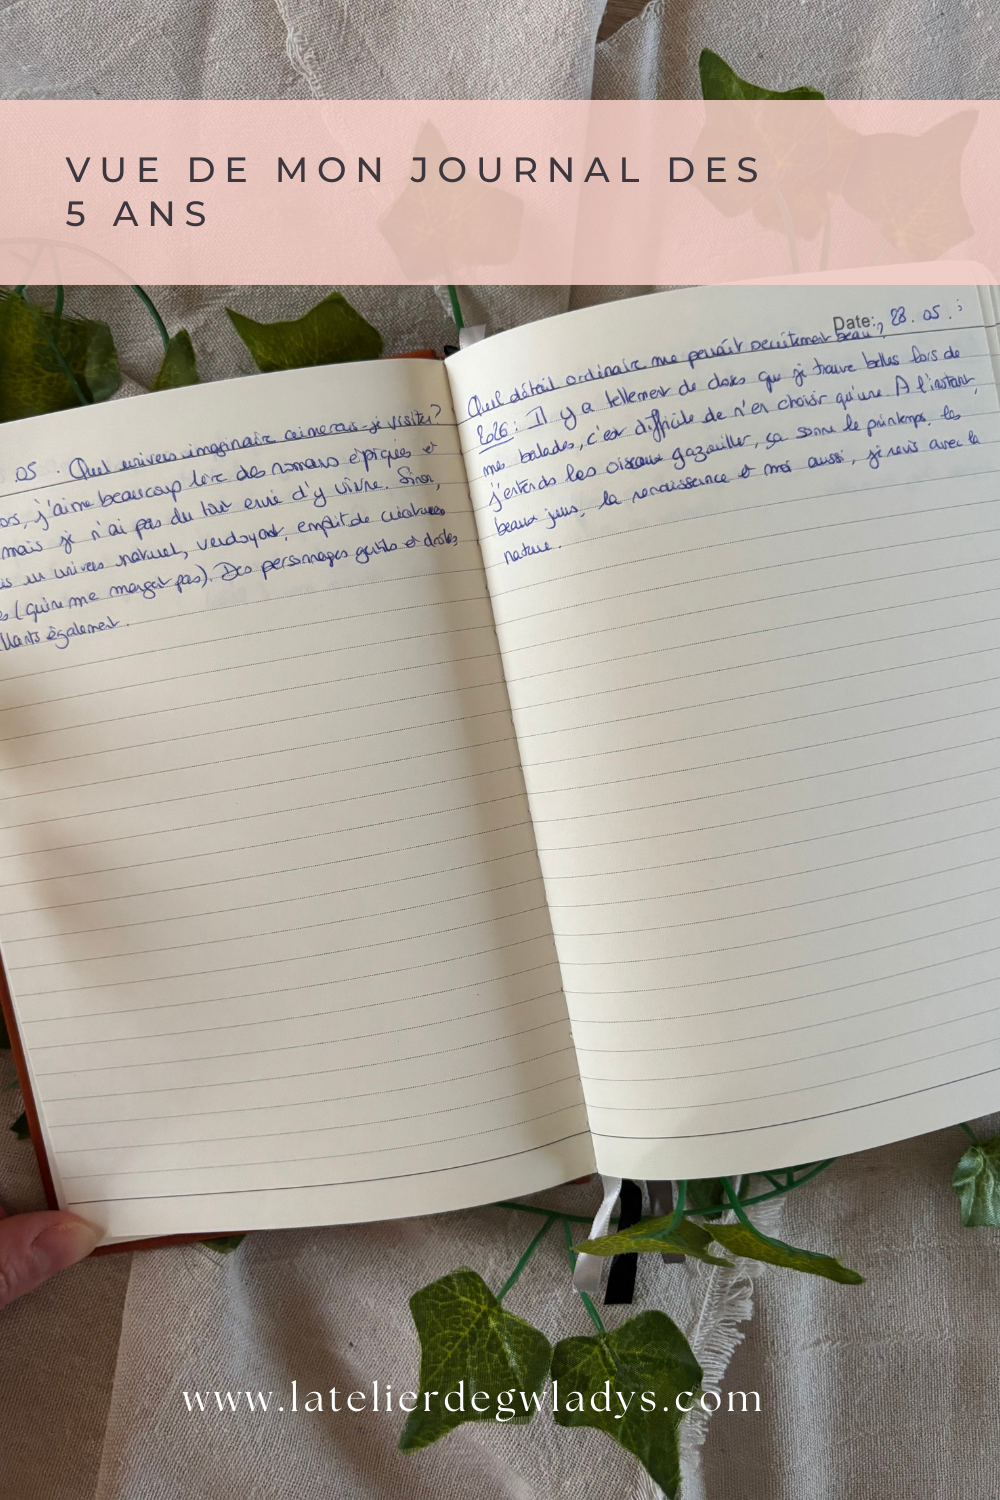 VUE DE MON JOURNAL DES
5 ANS
05. Quel univers imaginaire aimerais-je visiter?
j'aime beaucoup lire des romans épiques et
mais je n'ai pas du tout envie d'y vivre. Sinon,
un univers naturel, verdoyant, emplit de créatures
(qui ne me mangent pas). Des personnages gentils et drôles
également.
Date: 28.05.
Quel détail ordinaire me paraît secrètement beau?
2026: Il y a tellement de choses que je trouve belles lors de
mes balades, c'est difficile de n'en choisir qu'une. A l'instant,
j'entends les oiseaux gazouiller, ça sonne le printemps, les
beaux jours, la renaissance et moi aussi, je revis avec la
nature.
www.latelierdegwladys.com